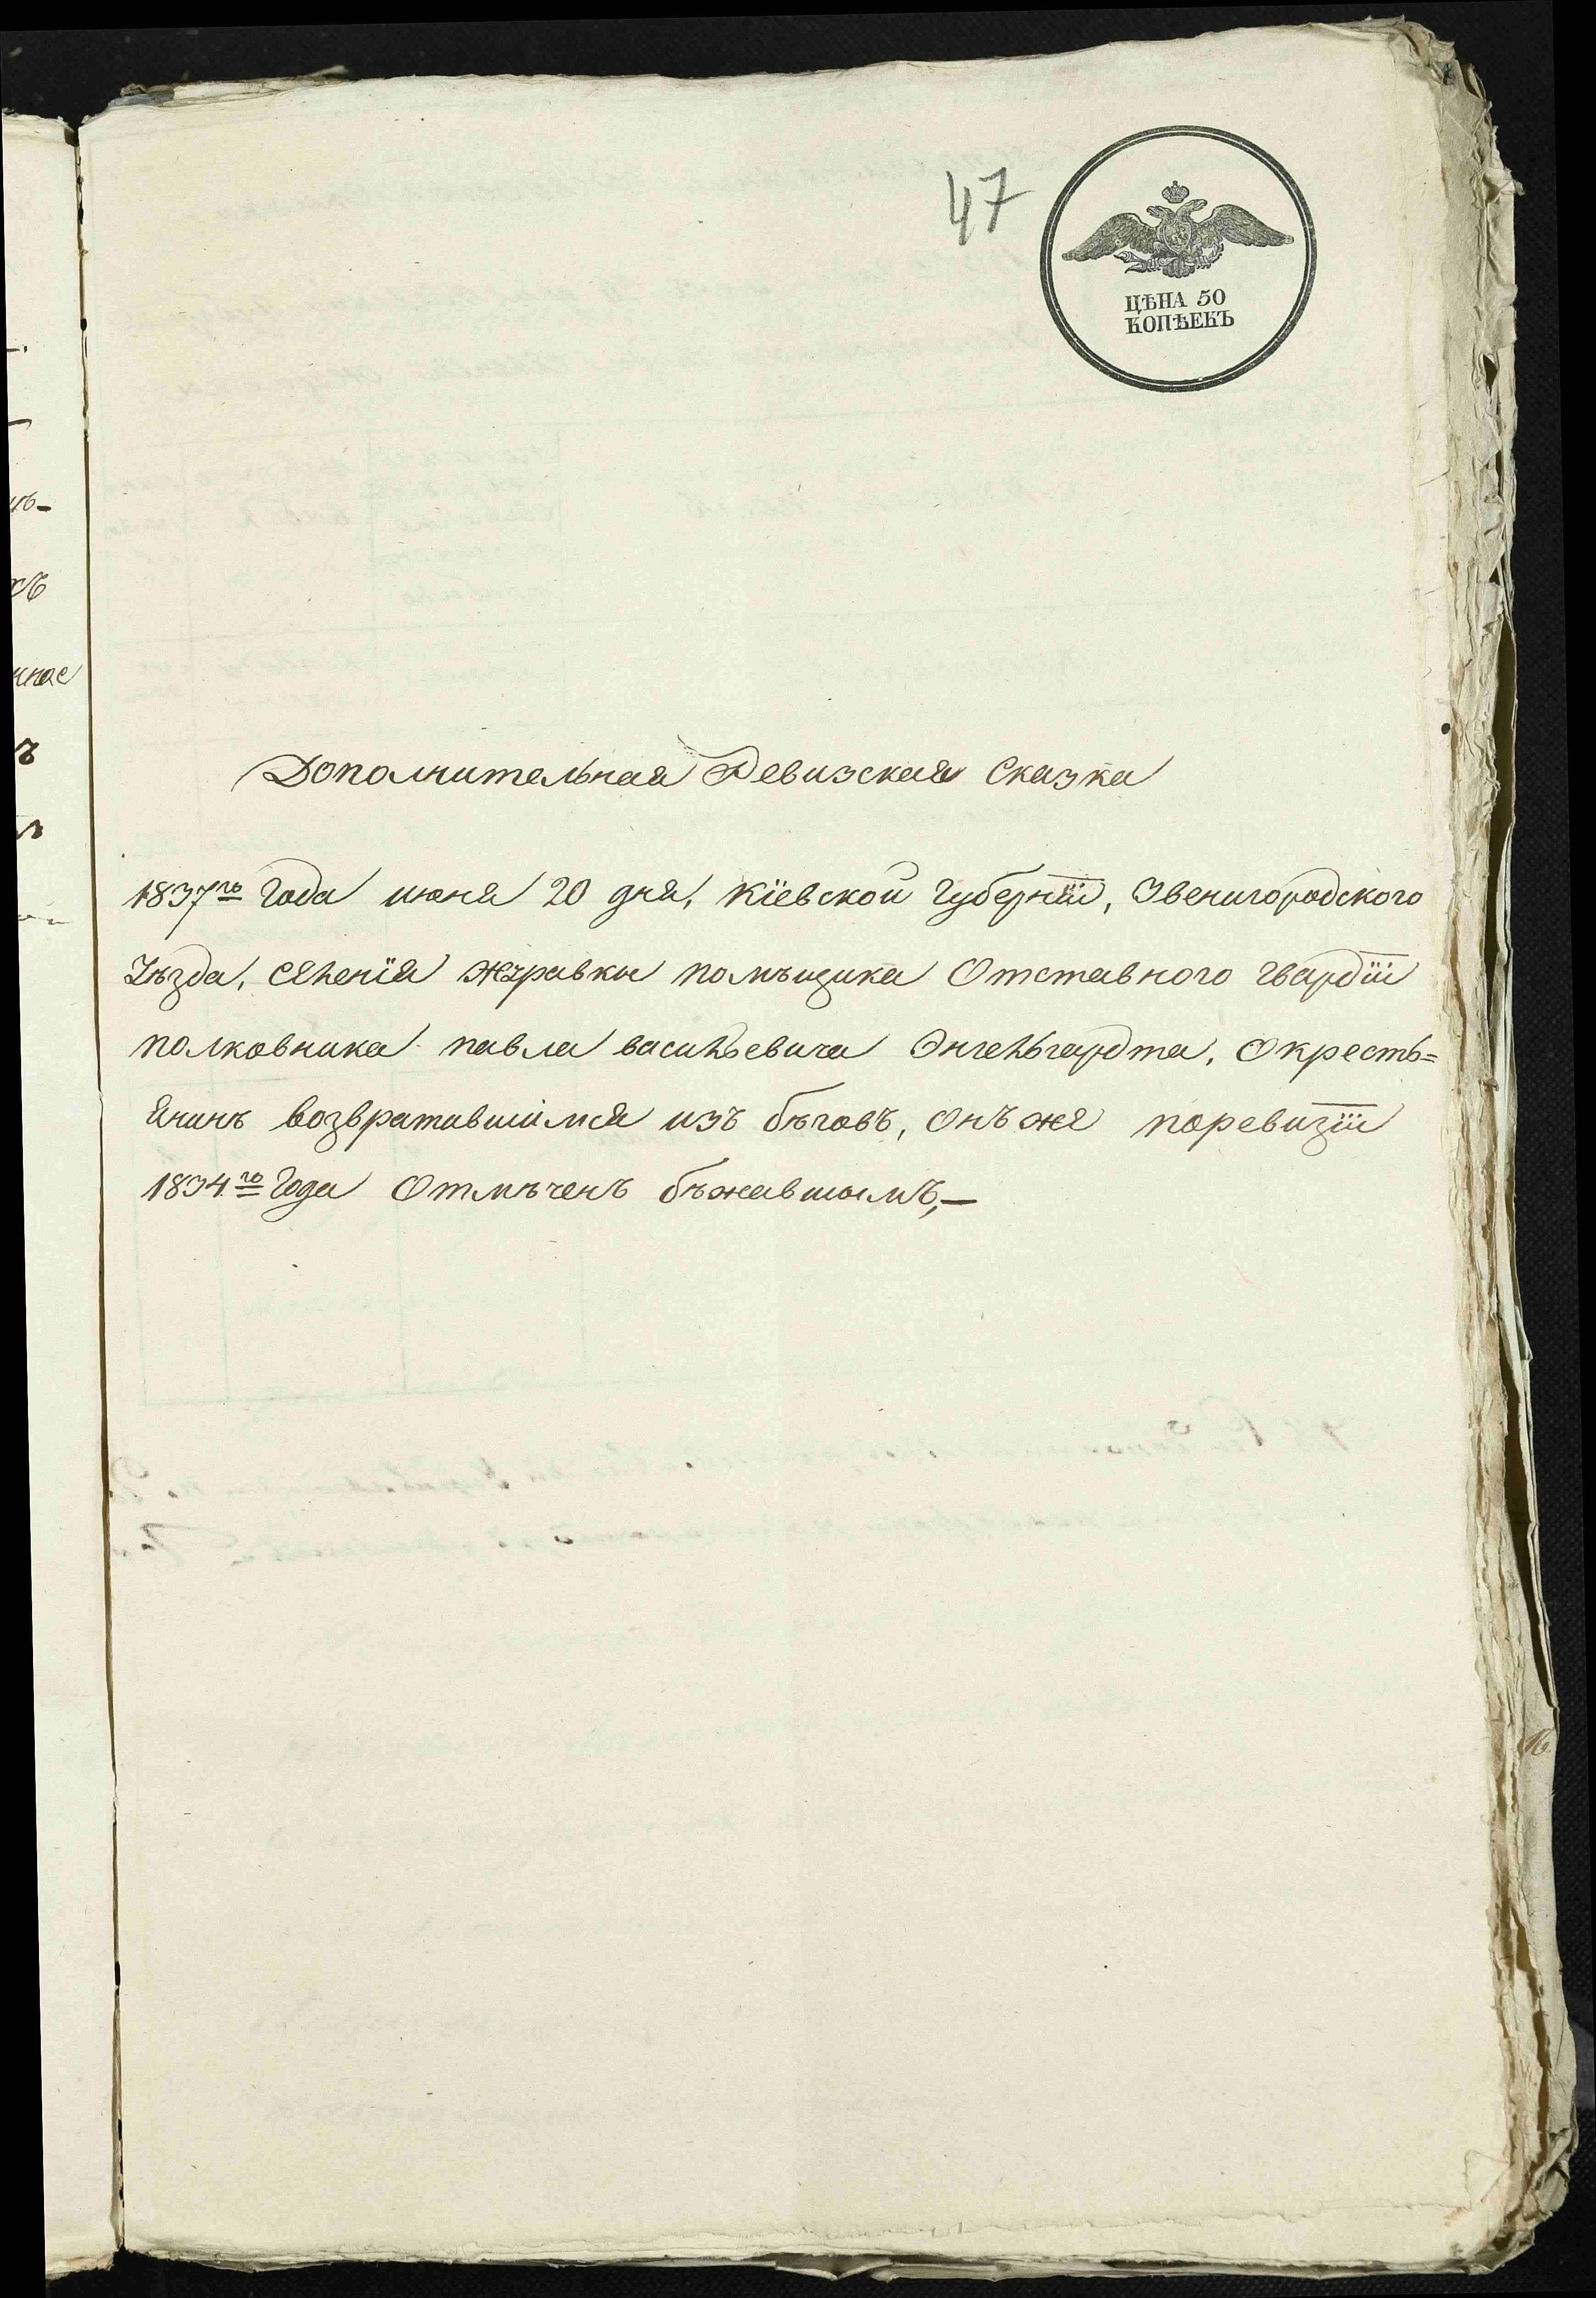 47
ЦѢНА 50
КОПѢЕКЪ
Дополнительная Ревизская Сказка
1837го Года июня 20 дня, Кіевской Губерніи, Звенигородского
Уѣзда, селенія Журавки помѣщика Отставного гвардіи
полковника павла васильевича Энгельгардта, Окресть=
янинѣ возвратившимся изъ бѣговъ, онъ же поревизіи
1834го Года Отмѣченъ бѣжавшимъ,—